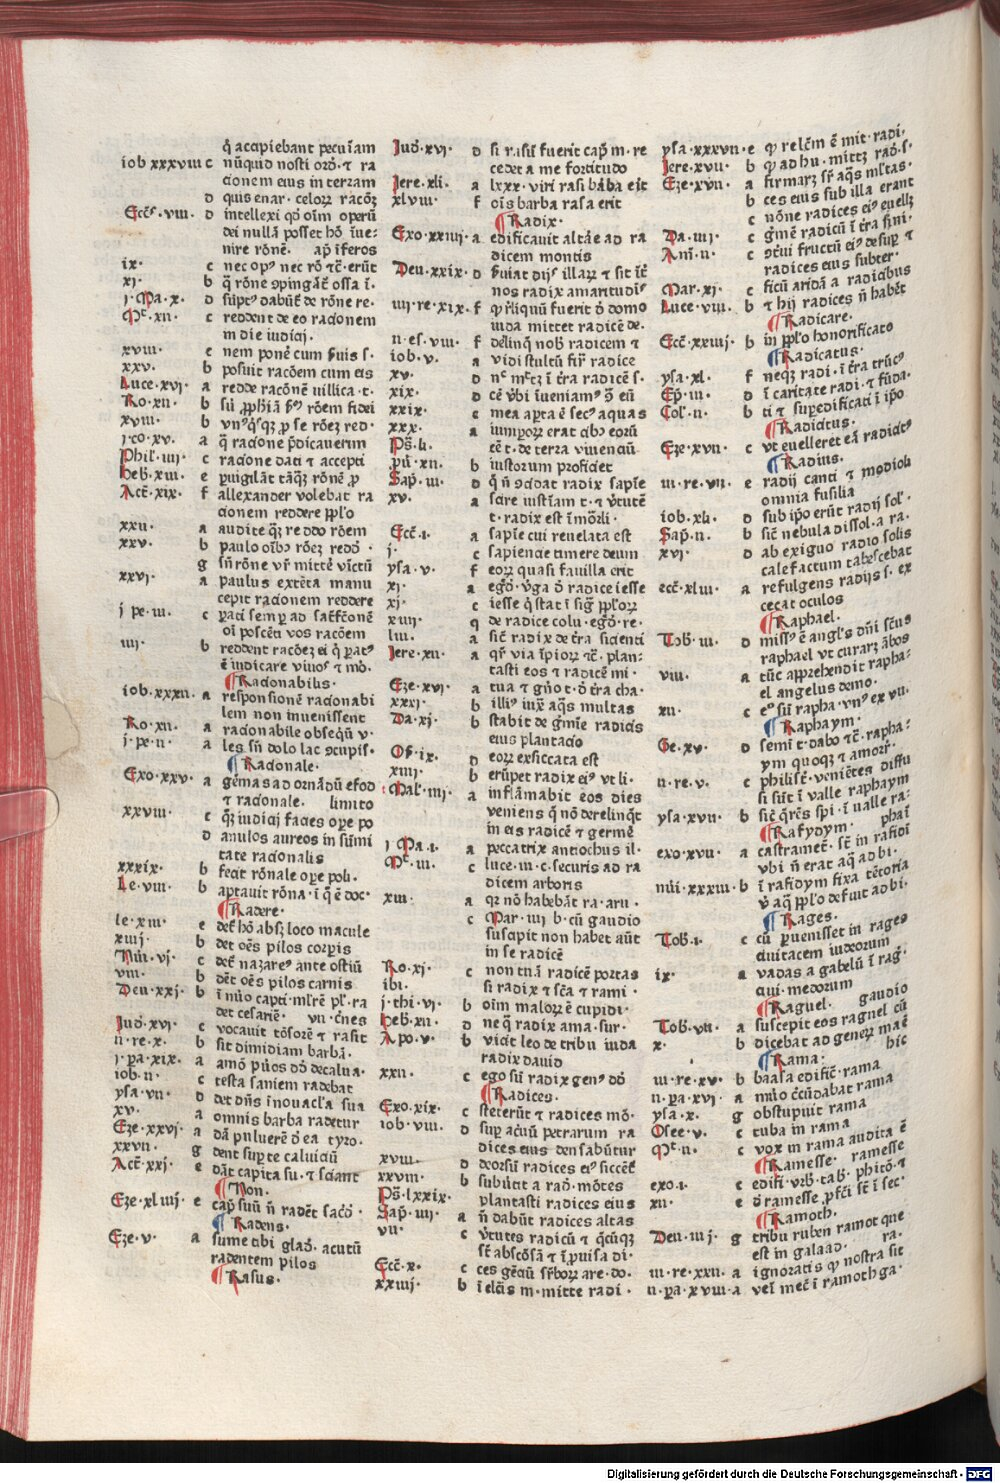 q̃ acapiebant pecuiam
iob xxxviii c nũquid nosti ord̃. ⁊ ra
cionem eius in terram
d quis enar. celoꝝ racõꝫ
Eccͥ. viii. d intellexi qͥ oĩm operũ
dei nullã posset hõ ĩue-
nire rõnẽ. ap̃ ĩferos
ix. c nec opꝰ nec rõ ⁊c̃. erũt
xj. b q̃ rõne
j. Ma. x. d de rõne re.
Mͭ. xii. c reddent de eo racionem
in die iudicij.
xviii. c nem ponẽ cum ẜuis s.
xxv. b posuit racõem cum eis
Luce. xvj. a redde racõnẽ uillica. t.
Ro. xii. b rõem fidei
xviii. b se rõeꝫ red.
j. co. xv. a q̃ racione p̃dicauerim
Phil. iiij. c racione dati ⁊ accepti
Heb. xiii. e puigilãt tãqꝫ rõnẽ ꝓ
Act̃. xix. f allexander volebat ra
cionem reddere pp̃lo
xxii. a audite qͣꝫ reddo rõem
xxv. b paulo oĩbꝰ rõeꝫ redd̃.
g sñ rõne vr̃ mittẽ vĩctũ
xxvj. a paulus extẽta manu
cepit racionem reddere
j pe. iii. c ꝑati semp ad satĩfcõnẽ
oĩ poscẽti vos racõem
iiij. b reddent racõeꝫ ei qͥ ꝑatꝰ
ẽ iudicare viuos ⁊ mõ.
¶Racionabilis.
iob. xxxii. a responsionẽ racionabi
lem non inuenissent
Ro. xii. a racionabile obseqũ v.
j. pe. ii. a les sñ dolo lac ꝯcupis.
¶Racionale.
Exo. xxv. a gẽmas ad ornãdũ efod
⁊ racionale. linito
xxviii. c qͣꝫ iudicij facies oꝑe po
d anulos aureos in sũmi
tate racionalis
xxxix. b fecit rõnale oꝑe poli.
Le. viii. b aptauit rõna. ĩ q̃ ẽ doc.
¶Radere.
le. xiii. e det̃ hõ absꝫ loco macule
xiiij. b det oẽs pilos corꝑis
Nũi. vj. c det̃ nazareꝰ ante ostiũ
viii. b dẽt oẽs pilos carnis
Deu. xxj. b ĩ
det cesariẽ. vii
Iud̃. xvj. c vocauit tõsorẽ ⁊ rasit
ii. re. x. b sit dimidiam barbã.
j. pa. xix. a amõ pũos dd̃ decalua.
iob. ii. c testa saniem radebat
ysa. vii. d det dñs ĩ nouacl̃a sua
xv. a omnis barba radetur
Eze. xxvj. a dã puluerẽ ẽ ea tyro.
xxvii. g dent suꝑ te caluiciũ
Act̃. xxj. e dãt capita su. ⁊ sciant
¶Non.
Eze. xliiij. e cap̃ suũ ñ radẽt sac̃d.
¶Radens.
Eze. v. a sume tibi glad̃. acutũ
radentem pilos
¶Rasus.
Iud̃. xvj. d si rasũ fuerit cap̃ m. re
cedet a me fortitudo
Iere. xli. a lxxx. viri rasi bãba eĩt
xlviii. f oĩs barba rasa erit
¶Radix.
Exo. xxiiij. a edificauit altãe ad ra
dicem montis
Deu. xxix. d ẜuiat dijs illaꝝ ⁊ sit ĩt̃
nos radix amaritudĩs
iiij. re. xix. f qͦ reliquũ fuerit ẽ domo
iuda mittet radicẽ de.
ii. es. viii. f delinq̃ nob̃ radicem ⁊
iob. v. a vidi stultũ firͣ radice
xv. d radicẽ s.
xix. d
xxix. c mea apta ẽ secꝰ aquas
xxx. a iunipoꝝ erat cibꝰ eorũ
Ps̃. li. eẽ t. de terra viuenciũ
pũ. xii. b iustorum proficiet
Sap̃. iii. d q̃ ñ ꝯcidat radix sapĩe
xv. a scire iusticiam t. ⁊ vĩtutẽ
t. radix est ĩmõrli.
Eccͥ. i. a sapĩe cui reuelata est
j. c sapiencie timere deum
ysa. v. f eoꝝ quasi fauilla erit
xj. a egd̃. ṽga ẽ radice iesse
xj. c iesse q̃ stat ĩ sig̃ pp̃loꝝ
xiiij. q de radice colu. egd̃. re.
liii. a sic̃ radix de tr̃a sicienti
Iere. xii. a qr̃ via ĩpioꝝ ⁊c̃. plan-
tasti eos ⁊ radicẽ mi.
Eze. xvj. a tua ⁊ gñot. ẽ tr̃a cha.
xxxj. b illiꝰ iuxͣ aq̃s multas
Da. xj. b stabit de gmĩe radicis
eius plantacio
Os. ix. d eoꝝ exsiccata est
xiiij. b erũpet radix eiꝰ vt li.
Mal. iiij. a inflãmabit eos dies
veniens q̃ nõ derelinq̃t
in eis radicẽ ⁊ germẽ
j Ma. i. a peccatrix antiochus il.
Mͭ. iii. c luce. iii. c. securis ad ra
dicem arboris
xiii. a qr nõ habebãt ra. aru.
c Mar. iiij b. cũ gaudio
suscipit non habet aũt
in se radicẽ
Ro. xj. c non tu ã radicẽ portas
ibi. si radix ⁊ sc̃a ⁊ rami.
j. thi. vj. b oĩm maloꝝ ẽ cupidi.
heb. xii. d ne q̃ radix ama. sur.
Apo. v. b vicit leo de tribu iuda
radix dauid
xxii. c ego sũ radix genꝰ dd̃
¶Radices.
Exo. xix. c steterũt ⁊ radices mõ.
iob. viii. d suꝑ acũũ petrarum ra
dices eius densabũtur
xviii. d deorsũ radices eiꝰ siccẽt̃
xxviii. b subũtit a rad̃. mõtes
Ps̃. lxxix. plantasti radices eius
Sap̃. iiij. a ñ dabũt radices altas
vii. c ṽtutes radicũ ⁊ q̃cũqꝫ
st̃ abscõsa ⁊ ĩpuisa di.
Eccͥ. x. c ces gẽciũ sr̃boꝝ are. do.
xxiiij. b ĩ elc̃is m. mitte radi.
ysa xxxvii. e qͥ relc̃m ẽ mit. radi.
Iere. xvii. b qͥ ad hu. mittꝫ rad̃. s.
Eze. xvii. a firmarꝫ sr̃ aq̃s ml̃tas.
b ces eius sub illa erant
c nõne radices eiꝰ euellꝫ
Da. iiij. c gm̃ẽ radicũ ĩ tr̃a sini.
Am̃. ii. c ꝯtiui fructũ eiꝰ desuꝑ ⁊
radices eius subter.
Mar. xj. c ficũ aridã a radicibus
Luce. viii. b ⁊ hij radices ñ habẽt
¶Radicare.
Eccͥ. xxiiij. b in pp̃lo honorificato
¶Radicatus.
ysa. xl. f neqꝫ radi. ĩ tr̃a trũcꝰ
Ep̃. iii. d ĩ caritate radi. ⁊ fũda.
Col̃. ii. b ti ⁊ suꝑedificati ĩ ip̃o
¶Radicitus.
Eze. xvii. c vt euelleret eã radicitꝰ
¶Radius.
iii. re. vii. e radij canti ⁊ modioli
omnia fusilia
iob. xli. d sub ip̃o erũt radij sol̃.
Sap̃. ii. b sic̃ nebula dissol. a ra.
xvj. d ab exiguo radio solis
calefactum tabescebat
ecc̃. xliii. a refulgens radijs s. ex
cecat oculos
¶Raphael.
Tob̃. iii. d missꝰ ẽ angl̃s dñi sc̃us
raphael vt curarꝫ ãbos
viii. a tũc apprehendit rapha-
el angelus demo.
xii. c eº sũ rapha. vnꝰ ex vii.
¶Raphaym.
Ge. xv. d semĩ t. dabo ⁊c̃. rapha-
ym quoqꝫ ⁊ amorr̃.
ii. re. v. c philist̃. veniẽtes diffu
si sũt ĩ valle raphaym
ysa. xvii. b sic̃ q̃rẽs spi. ĩ ualle ra-
¶Rafydym. phaĩ
exo. xvii. a castramet̃. st̃ in rafidĩ
vbi ñ erat aq̃ ad bi.
nũi. xxxiii. b ĩ rafidym fixa tẽtoria
ṽ aq̃ pp̃lo defuit ad bi.
¶Rages.
Tob̃. i. c cũ ꝑuenisset in rages
ciuitacem iudeorum
ix. a vadas a gabelũ ĩ rag̃.
ciui. medorum
¶Raguel. gaudio
Tob̃. vii. a suscepit eos raguel cũ
x. b dicebat ad generꝫ maẽ
¶Rama. hic
iii. re. xv. b baasa edific̃. rama
ii. pa. xvj. a nũio c̃cũdabat rama
ysa. x. g obstupuit rama
Osee. v. c tuba in rama
Mͭ. ii. c vox in rama audita ẽ
¶Ramesse. ramesse
exo. i. c edifi. vrb̃. tab̃. phitõ. ⁊
xii. e ẽ ramesse ꝓfc̃i st̃ ĩ sec.
¶Ramoth.
Deu. iiij. g tribu ruben ramot que
est in galaad. ra.
iii. re. xxii. a ignoratis qͥ nostra sit
ii. pa. xviii. a vel̃ mec̃ ĩ ramoth ga.
Digitalisierung gefördert durch die Deutsche Forschungsgemeinschaft - DFG